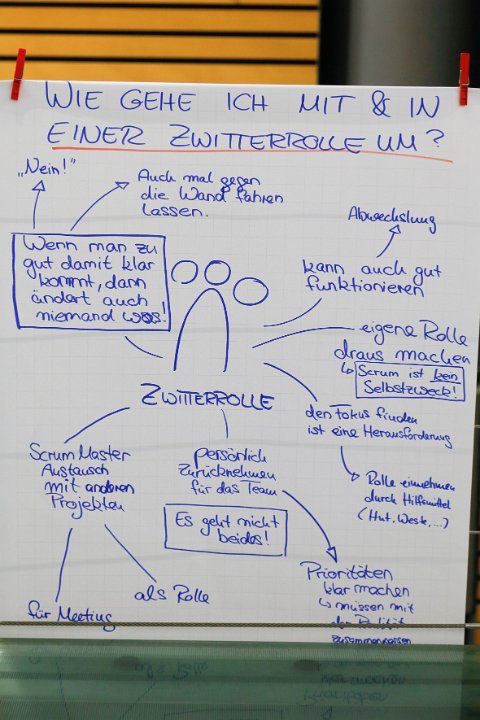 WIE GEHE ICH MIT & IN
EINER ZWITTERROLLE UM?
„Nein!"
Auch mal gegen
die Wand fahren
lassen.
Wenn man zu
gut damit klar
kommt, dann
ändert auch
niemand was!
Abwechslung
kann auch gut
funktionieren
eigene Rolle
draus machen
↳ Scrum ist kein
Selbstzweck!
ZWITTERROLLE
den Fokus finden
ist eine Herausforderung
Rolle einnehmen
durch Hilfsmittel
(Hut, Weste,...)
Scrum Master
Austausch
mit anderen
Projekten
für Meeting
als Rolle
persönlich
Zurücknehmen
für das Team
Es geht nicht
beides!
Prioritäten
klar machen
↳ müssen mit
der Realität
zusammenpassen